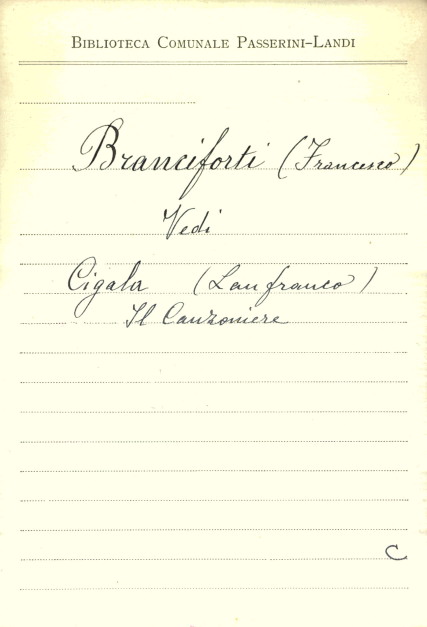 Biblioteca Comunale Passerini-Landi
Branciforti (Francesco)
Vedi
Cigala (Lanfranco)
Il Canzoniere
C